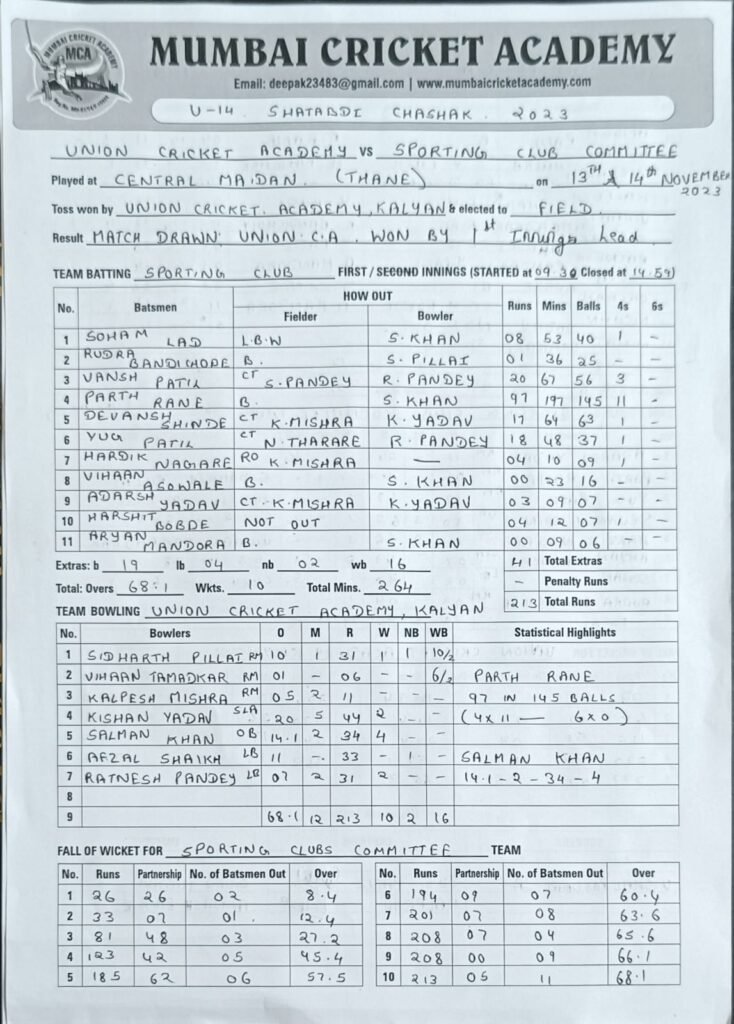 MUMBAI CRICKET ACADEMY
MCA
MUMBAI CRICKET ACADEMY
Email: deepak23483@gmail.com | www.mumbaicricketacademy.com
U-14 SHATABDI CHASHAK. 2023
UNION CRICKET ACADEMY vs SPORTING CLUB COMMITTEE
Played at CENTRAL MAIDAN. (THANE) on 13TH & 14th NOVEMBER 2023
Toss won by UNION CRICKET. ACADEMY, KALYAN & elected to FIELD.
Result MATCH DRAWN: UNION.C.A. WON BY 1st Innings Lead.
TEAM BATTING SPORTING CLUB FIRST / SECOND INNINGS (STARTED at 09.30 Closed at 14.59)
No. Batsmen HOW OUT Runs Mins Balls 4s 6s
Fielder Bowler
1 SOHAM LAD L.B.W S. KHAN 08 53 40 1 -
2 RUDRA BANDICHODE B. S. PILLAI 01 36 25 - -
3 VANSH PATIL CT S. PANDEY R. PANDEY 20 67 56 3 -
4 PARTH RANE B. S. KHAN 97 197 145 11 -
5 DEVANSH SHINDE CT K. MISHRA K. YADAV 17 64 63 1 -
6 YUG PATIL CT N. THARARE R. PANDEY 18 48 37 1 -
7 HARDIK NAGARE RO K. MISHRA — 04 10 09 1 -
8 VIHAAN ASOWALE B. S. KHAN 00 23 16 - -
9 ADARSH YADAV CT. K. MISHRA K. YADAV 03 09 07 - -
10 HARSHIT BOBDE NOT OUT 04 12 07 1 -
11 ARYAN MANDORA B. S. KHAN 00 09 06 - -
Extras: b 19 lb 04 nb 02 wb 16 41 Total Extras
- Penalty Runs
Total: Overs 68.1 Wkts. 10 Total Mins. 264 213 Total Runs
TEAM BOWLING UNION CRICKET ACADEMY, KALYAN
No. Bowlers O M R W NB WB Statistical Highlights
1 SIDHARTH PILLAI RM 10 1 31 1 1 10/2
2 VIHAAN TAMADKAR RM 01 - 06 - - 6/2 PARTH RANE
3 KALPESH MISHRA RM 05 2 11 - - - 97 IN 145 BALLS
4 KISHAN YADAV SLA 20 5 44 2 - - (4X11 — 6X0)
5 SALMAN KHAN OB 14.1 2 34 4 - -
6 AFZAL SHAIKH LB 11 - 33 - 1 - SALMAN KHAN
7 RATNESH PANDEY LB 07 2 31 2 - - 14.1 - 2 - 34 - 4
8
9 68.1 12 213 10 2 16
FALL OF WICKET FOR SPORTING CLUBS COMMITTEE TEAM
No. Runs Partnership No. of Batsmen Out Over No. Runs Partnership No. of Batsmen Out Over
1 26 26 02 8.4 6 194 09 07 60.4
2 33 07 01. 12.4 7 201 07 08 63.6
3 81 48 03 27.2 8 208 07 04 65.6
4 123 42 05 45.4 9 208 00 09 66.1
5 185 62 06 57.5 10 213 05 11 68.1